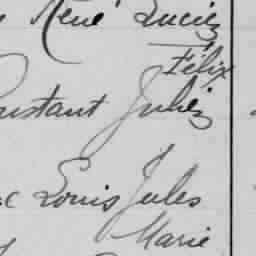 René Lucien
Félix
Constant Julien
Louis Jules
Marie